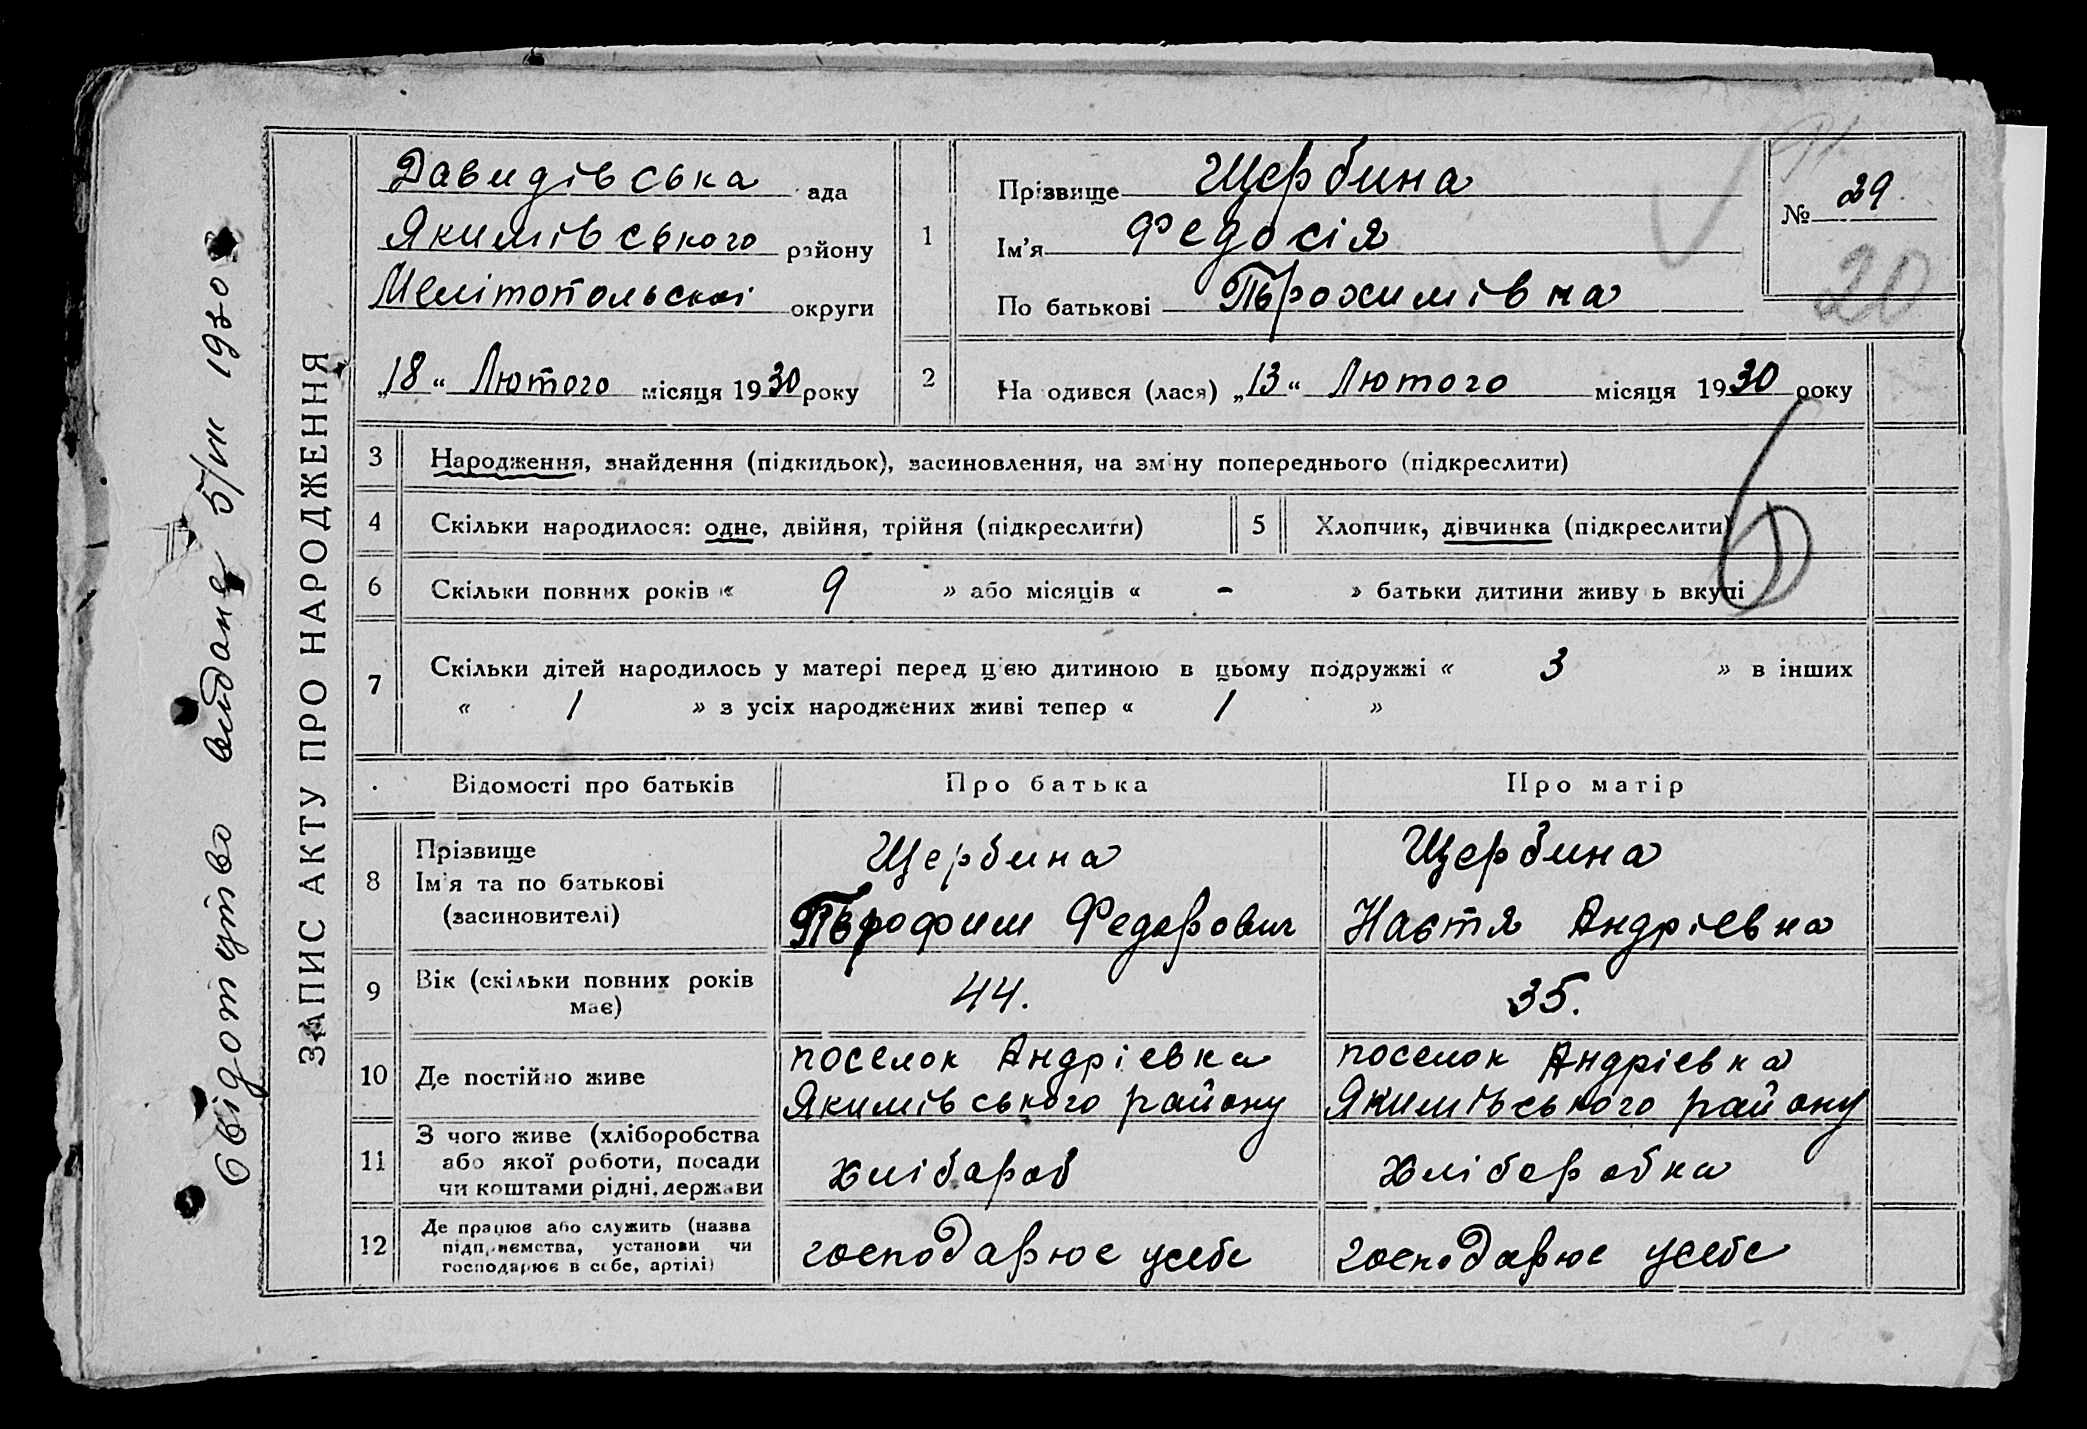 Свідоцтво видане 5/III 1930
ЗАПИС АКТУ ПРО НАРОДЖЕННЯ
Давидівська ада
Якимівського району
Мелітопольскої округи
„18“ Лютого місяця 1930 року
1
Прізвище Щербина
Ім'я Федосія
По батькові Трохимівна
№ 29
20
2
На одився (лася) „13“ Лютого місяця 1930 року
3 Народження, знайдення (підкидьок), засиновлення, на зміну попереднього (підкреслити)
4 Скільки народилося: одне, двійня, трійня (підкреслити) 5 Хлопчик, дівчинка (підкреслити)
6
6 Скільки повних років « 9 » або місяців « - » батьки дитини живу ь вкупі
7 Скільки дітей народилось у матері перед цією дитиною в цьому подружжі « 3 » в інших
« 1 » з усіх народжених живі тепер « 1 »
Відомості про батьків Про батька Про матір
8 Прізвище
Ім'я та по батькові
(засиновителі)
Щербина
Трофим Федорович
Щербина
Настя Андріевна
9 Вік (скільки повних років
має)
44. 35.
10 Де постійно живе
поселок Андріевка
Якимівського району
поселок Андріевка
Якимівського району
11 З чого живе (хліборобства
або якої роботи, посади
чи коштами рідні, держави
хлібароб хліборобка
12 Де працює або служить (назва
підприємства, установи чи
господарює в себе, артілі)
господарює усебе господарює усебе